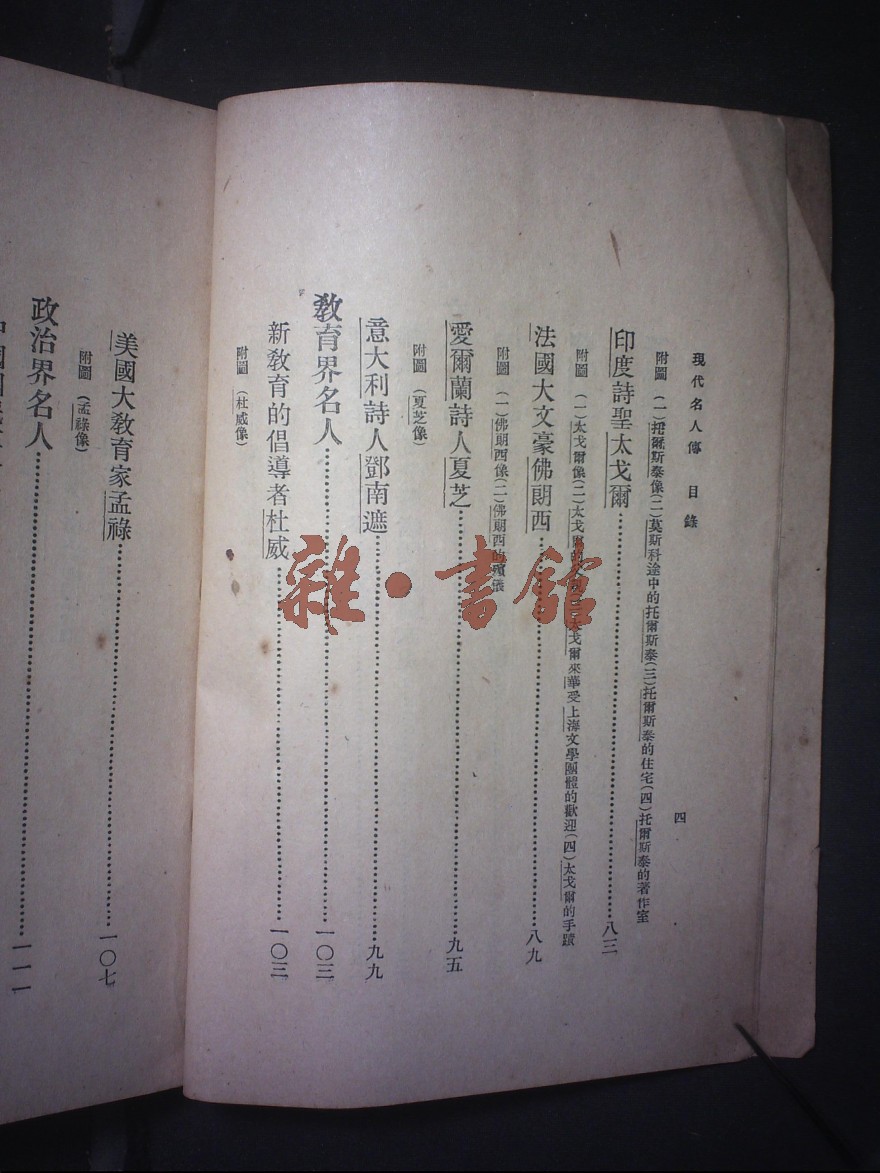 現代名人傳 目錄 四
附圖 (一)托爾斯泰像(二)莫斯科途中的托爾斯泰(三)托爾斯泰的住宅(四)托爾斯泰的著作室
印度詩聖太戈爾 八三
附圖 (一)太戈爾像(二)太戈爾的 太戈爾來華受上海文學團體的歡迎(四)太戈爾的手蹟
法國大文豪佛朗西 八九
附圖 (一)佛朗西像(二)佛朗西的殯儀
愛爾蘭詩人夏芝 九五
附圖 (夏芝像)
意大利詩人鄧南遮 九九
教育界名人 一〇三
新教育的倡導者杜威 一〇三
附圖 (杜威像)
美國大教育家孟祿 一〇七
附圖 (孟祿像)
政治界名人 一一一
雜·書館